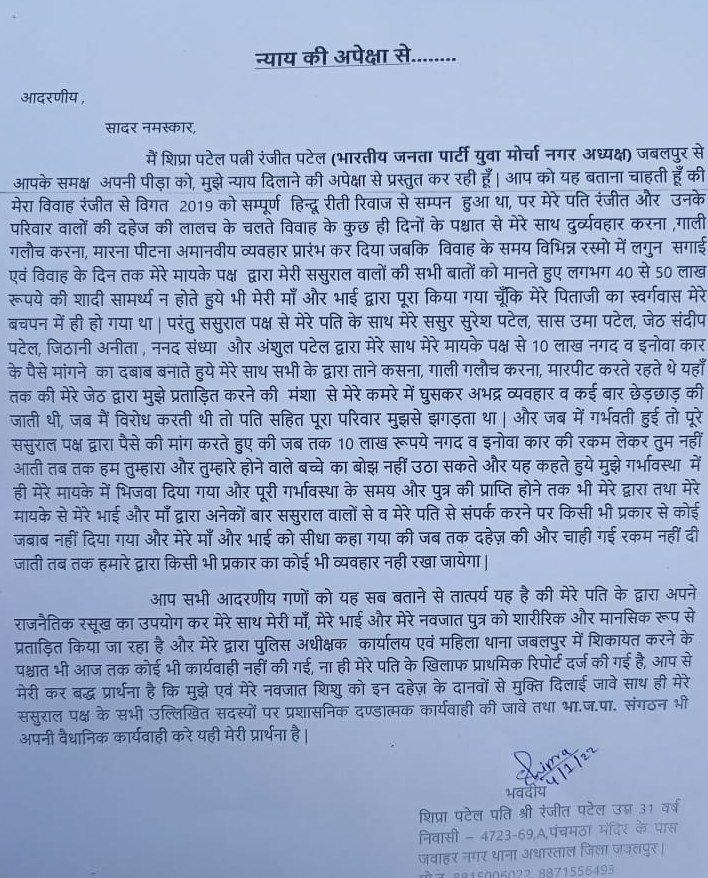 न्याय की अपेक्षा से........
आदरणीय ,
सादर नमस्कार,
मैं शिप्रा पटेल पत्नी रंजीत पटेल (भारतीय जनता पार्टी युवा मोर्चा नगर अध्यक्ष) जबलपुर से
आपके समक्ष अपनी पीड़ा को, मुझे न्याय दिलाने की अपेक्षा से प्रस्तुत कर रही हूँ | आप को यह बताना चाहती हूँ की
मेरा विवाह रंजीत से विगत 2019 को सम्पूर्ण हिन्दू रीती रिवाज से सम्पन हुआ था, पर मेरे पति रंजीत और उनके
परिवार वालों की दहेज की लालच के चलते विवाह के कुछ ही दिनों के पश्चात से मेरे साथ दुर्व्यवहार करना ,गाली
गलौच करना, मारना पीटना अमानवीय व्यवहार प्रारंभ कर दिया जबकि विवाह के समय विभिन्न रस्मो में लगुन सगाई
एवं विवाह के दिन तक मेरे मायके पक्ष द्वारा मेरी ससुराल वालों की सभी बातों को मानते हुए लगभग 40 से 50 लाख
रूपये की शादी सामर्थ्य न होते हुये भी मेरी माँ और भाई द्वारा पूरा किया गया चूँकि मेरे पिताजी का स्वर्गवास मेरे
बचपन में ही हो गया था | परंतु ससुराल पक्ष से मेरे पति के साथ मेरे ससुर सुरेश पटेल, सास उमा पटेल, जेठ संदीप
पटेल, जिठानी अनीता , ननद संध्या और अंशुल पटेल द्वारा मेरे साथ मेरे मायके पक्ष से 10 लाख नगद व इनोवा कार
के पैसे मांगने का दबाब बनाते हुये मेरे साथ सभी के द्वारा ताने कसना, गाली गलौच करना, मारपीट करते रहते थे यहाँ
तक की मेरे जेठ द्वारा मुझे प्रताड़ित करने की मंशा से मेरे कमरे में घुसकर अभद्र व्यवहार व कई बार छेड़छाड़ की
जाती थी, जब मैं विरोध करती थी तो पति सहित पूरा परिवार मुझसे झगड़ता था | और जब में गर्भवती हुई तो पूरे
ससुराल पक्ष द्वारा पैसे की मांग करते हुए की जब तक 10 लाख रूपये नगद व इनोवा कार की रकम लेकर तुम नहीं
आती तब तक हम तुम्हारा और तुम्हारे होने वाले बच्चे का बोझ नहीं उठा सकते और यह कहते हुये मुझे गर्भावस्था में
ही मेरे मायके में भिजवा दिया गया और पूरी गर्भावस्था के समय और पुत्र की प्राप्ति होने तक भी मेरे द्वारा तथा मेरे
मायके से मेरे भाई और माँ द्वारा अनेकों बार ससुराल वालों से व मेरे पति से संपर्क करने पर किसी भी प्रकार से कोई
जबाब नहीं दिया गया और मेरे माँ और भाई को सीधा कहा गया की जब तक दहेज़ की और चाही गई रकम नहीं दी
जाती तब तक हमारे द्वारा किसी भी प्रकार का कोई भी व्यवहार नही रखा जायेगा |
आप सभी आदरणीय गणों को यह सब बताने से तात्पर्य यह है की मेरे पति के द्वारा अपने
राजनैतिक रसूख का उपयोग कर मेरे साथ मेरी माँ, मेरे भाई और मेरे नवजात पुत्र को शारीरिक और मानसिक रूप से
प्रताड़ित किया जा रहा है और मेरे द्वारा पुलिस अधीक्षक कार्यालय एवं महिला थाना जबलपुर में शिकायत करने के
पश्चात भी आज तक कोई भी कार्यवाही नहीं की गई, ना ही मेरे पति के खिलाफ प्राथमिक रिपोर्ट दर्ज की गई है, आप से
मेरी कर बद्ध प्रार्थना है कि मुझे एवं मेरे नवजात शिशु को इन दहेज़ के दानवों से मुक्ति दिलाई जावे साथ ही मेरे
ससुराल पक्ष के सभी उल्लिखित सदस्यों पर प्रशासनिक दण्डात्मक कार्यवाही की जावे तथा भा.ज.पा. संगठन भी
अपनी वैधानिक कार्यवाही करे यही मेरी प्रार्थना है |
4/1/22
भवदीय
शिप्रा पटेल पति श्री रंजीत पटेल उम्र 31 वर्ष
निवासी – 4723-69,A,पंचमठा मंदिर के पास
जवाहर नगर थाना अधारताल जिला जबलपुर |
8871556493